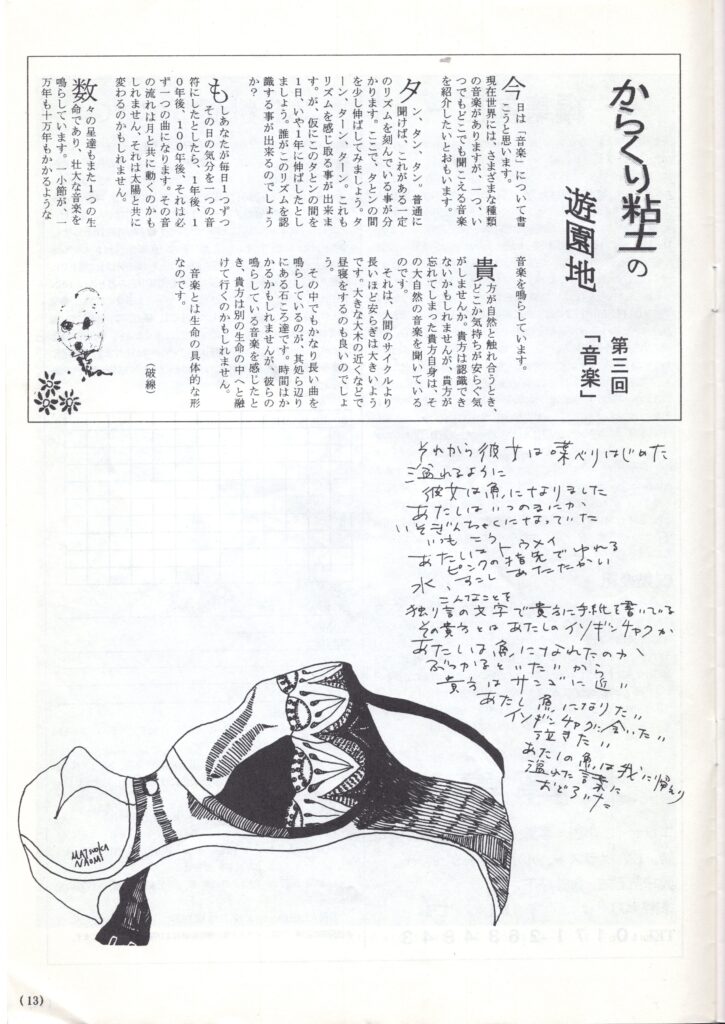 からくり粘土の
遊園地
第三回
「音楽」
今日は「音楽」について書
こうと思います。
現在世界には、さまざまな種類
の音楽がありますが、一つ、い
つでもどこでも聞こえる音楽
を紹介したいとおもいます。
タン、タン、タン。普通に
聞けば、これがある一定
のリズムを刻んでいる事が分
かります。ここで、タとンの間
を少し伸ばしてみましょう。タ
ーン、ターン、ターン。これも
リズムを感じ取る事が出来ま
す。が、仮にこのタとンの間を
1日、いや1年に伸ばしたとし
ましょう。誰がこのリズムを認
識する事が出来るのでしょう
か?
もしあなたが毎日1つずつ
その日の気分を一つの音
符にしたとしたら、1年後、1
0年後、100年後、それは必
ず一つの曲になります。その音
の流れは月と共に動くのかも
しれません、それは太陽と共に
変わるのかもしれません。
数々の星達もまた1つの生
命であり、壮大な音楽を
鳴らしています。一小節が、一
万年も十万年もかかるような
音楽を鳴らしています。
貴方が自然と触れ合うとき、
どこか気持ちが安らぐ気
がしませんか。貴方は認識でき
ないかもしれませんが、貴方が
忘れてしまった貴方自身は、そ
の大自然の音楽を聞いている
のです。
それは、人間のサイクルより
長いほど安らぎは大きいよう
です。大きな大木の近くなどで
昼寝をするのも良いのでしょ
う。
その中でもかなり長い曲を
鳴らしているのが、其処ら辺り
にある石ころ達です。時間はか
かるかもしれませんが、彼らの
鳴らしている音楽を感じたと
き、貴方は別の生命の中へと融
けて行くのかもしれません。
音楽とは生命の具体的な形
なのです。
(破線)
それから彼女は喋べりはじめた
溢れるように
彼女は魚になりました
あたしはいつのまにか
いそぎんちゃくになっていた
いつも こう
あたいは トウメイ
ピンクの指先でゆれる
水、すこし あたたかい
こんなことを
独り言の文字で貴方に手紙を書いている
その貴方とは あたしのイソギンチャクか
あたしは魚になれたのか
ぶつかるといたいから
貴方はサンゴに近い
あたし 魚になりたい
イソギンチャクに会いたい
泣きたい
あたしの魚は我に帰り
溢れた言葉に
おどろいた
MATSUOKA
NAOMI
(13)